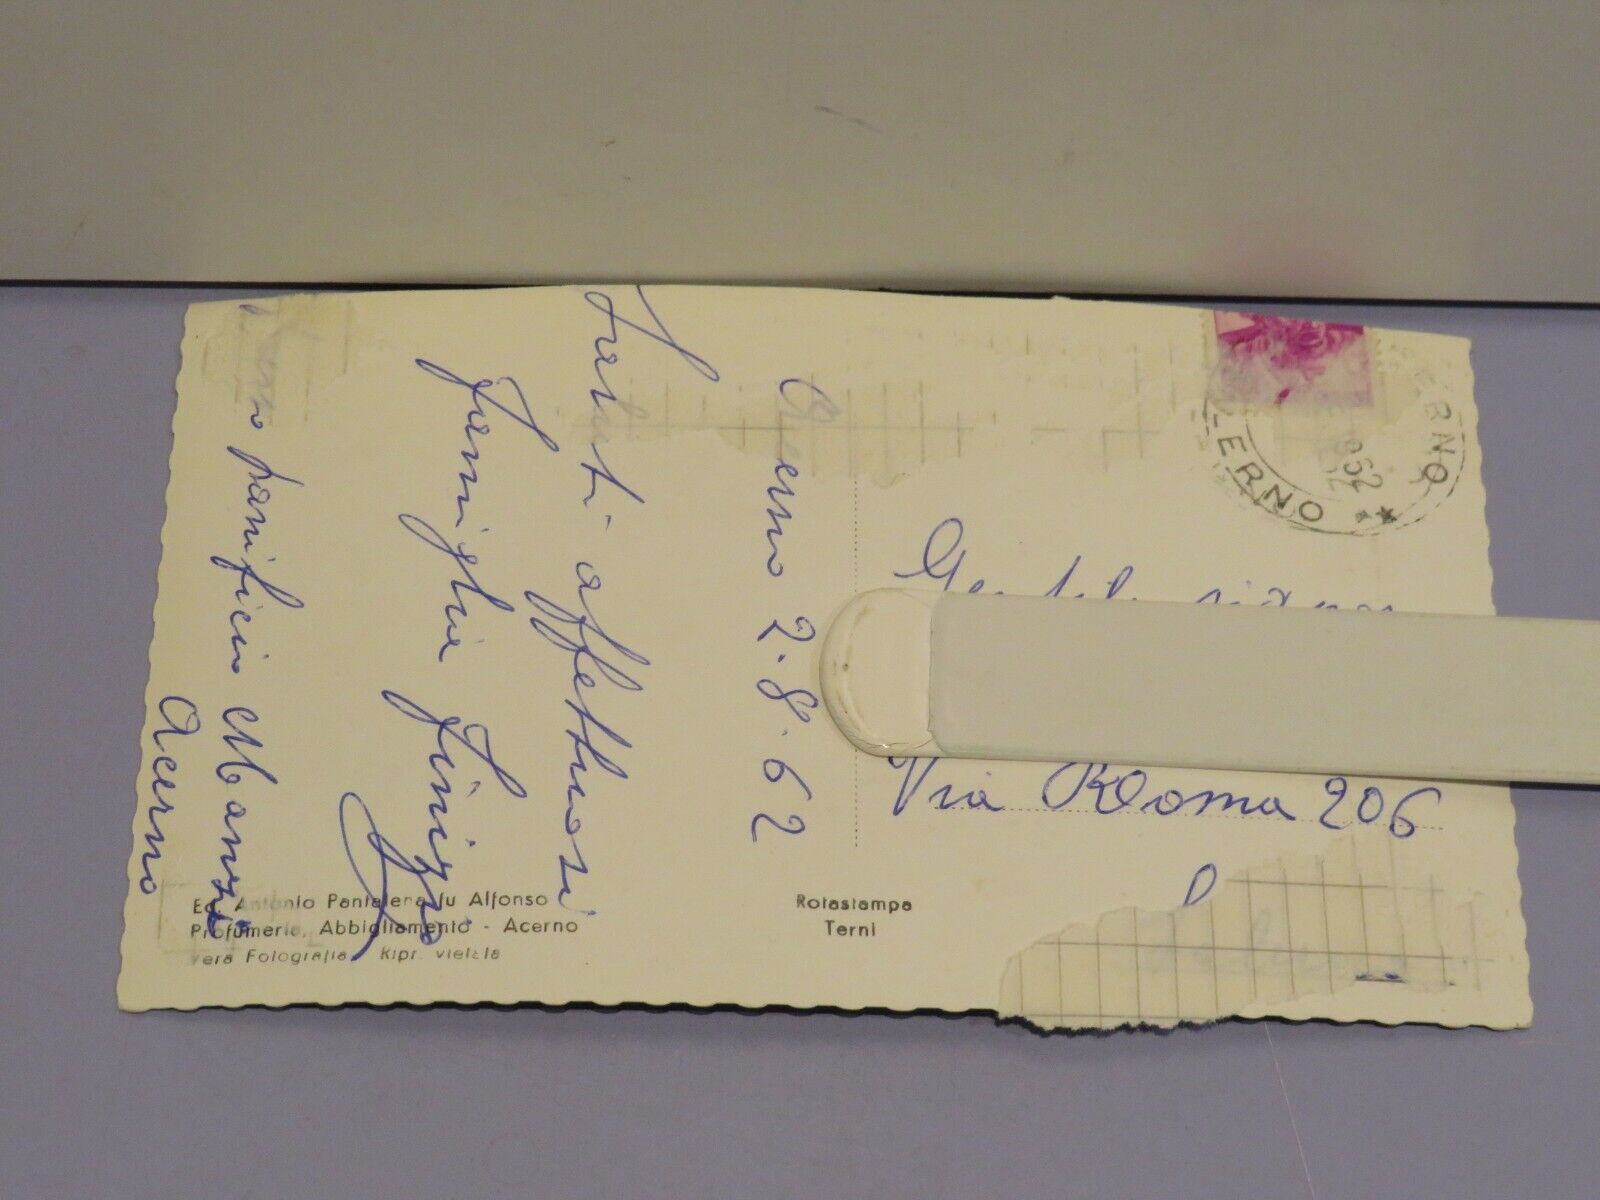 Acerno 2.8.62
Saluti affettuosi
famiglia
panificio
Acerno
Gentil
Via Roma 206
Ed. Antonio Pantalena fu Alfonso
Profumerie, Abbigliamento - Acerno
Vera Fotografia Ripr. vietata
Rotastampa
Terni
ERNO
LERNO **
962